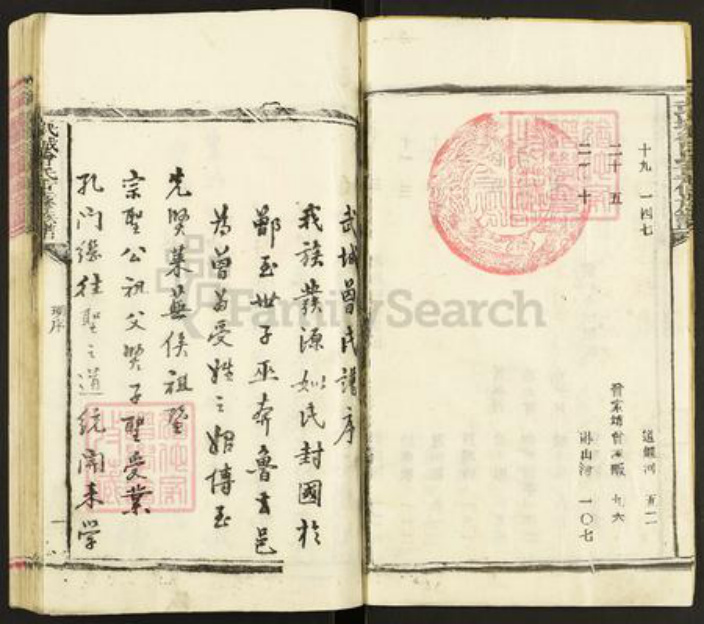 十九 一四七
二十 五
二一 十
道鰕河 五二
曾家靖曾家畈 九六
林山河 一〇七
武城曾氏譜序
我族發源姒氏封國於
鄫至世子巫奔魯去邑
為曾曾受姓之始傳至
先賢萊蕪侯祖暨
宗聖公祖父與子聖受業
孔門繼往聖之道統開來學
FamilySearch